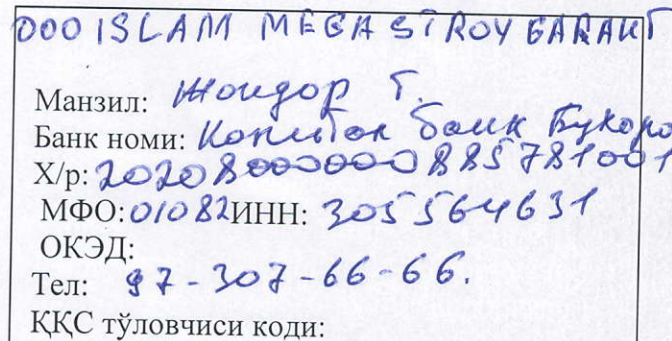 ООО ISLAM MEGA STROY BARAKT
Манзил: Жондор т.
Банк номи: Капитал банк Бухоро
Х/р: 20208000000885781001
МФО: 01082 ИНН: 305564631
ОКЭД:
Тел: 97-307-66-66.
ҚҚС тўловчиси коди: